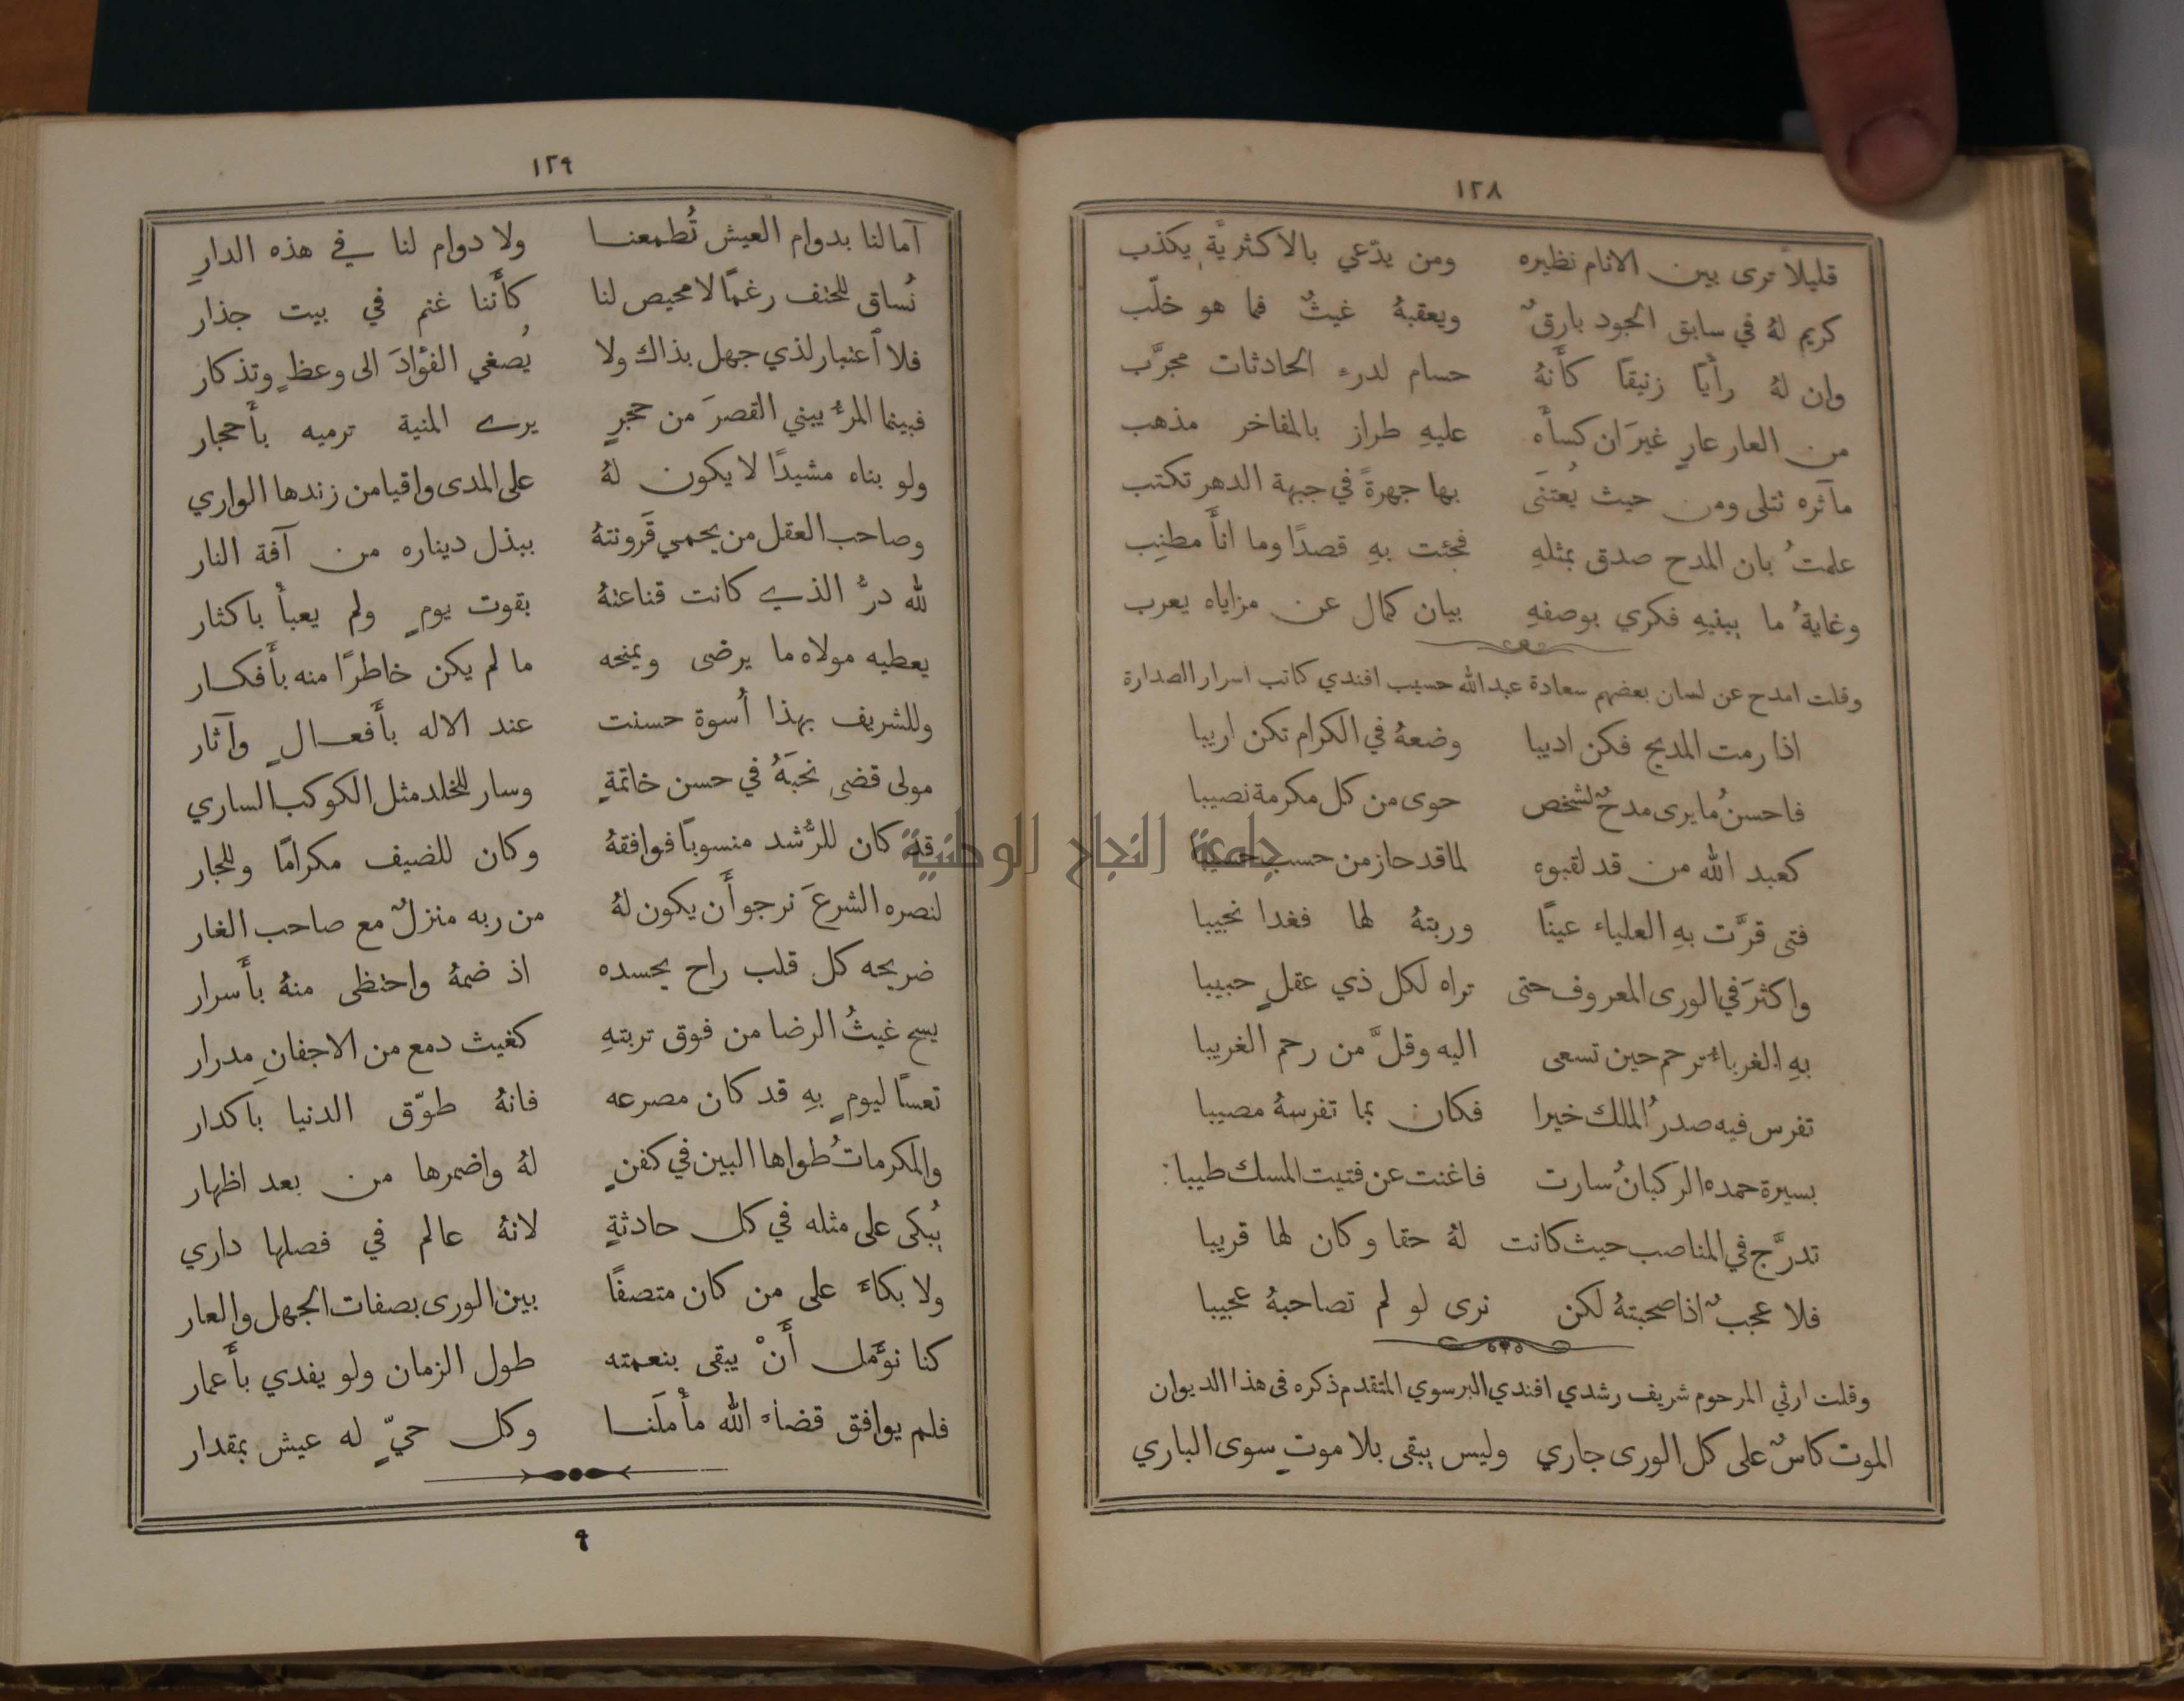 ١٢٨
قليلاً ترى بين الانام نظيره ومن يدّعي بالاكثريَّة يكذب
كريم لهُ في سابق الجود بارقٌ ويعقبهُ غيثٌ فما هو خلّب
وان لهُ رأيًا زنيقًا كأَنهُ حسام لدرء الحادثات مجرَّب
من العار عارٍ غيرَ ان كسأَه عليهِ طراز بالمفاخر مذهب
مآثره تتلى ومن حيث يُعتنَى بها جهرةً في جبهة الدهر تكتب
علمتُ بان المدح صدق بمثلهِ فجئت بهِ قصدًا وما انأَ مطنِب
وغايةُ ما يبغيهِ فكري بوصفهِ بيان كمال عن مزاياه يعرب
وقلت امدح عن لسان بعضهم سعادة عبدالله حسيب افندي كاتب اسرار الصدارة
اذا رمت المديح فكن اديبا وضعهُ في الكرام تكن اريبا
فاحسنُ ما يرى مدحٌ لشخص حوى من كل مكرمة نصيبا
كعبد الله من قد لقبوه لما قد حاز من حسب حسيبا
فتى قرَّت بهِ العلياء عينًا وربتهُ لها فغدا نجيبا
واكثرَ في الورى المعروف حتى تراه لكل ذي عقلٍ حبيبا
بهِ الغرباءُ ترحم حين تسعى اليه وقلَّ من رحم الغريبا
تفرس فيه صدرُ الملك خيرا فكان بما تفرسهُ مصيبا
بسيرة حمده الركبانُ سارت فاغنت عن فتيت المسك طيبا
تدرَّج في المناصب حيث كانت لهُ حقا وكان لها قريبا
فلا عجبٌ اذا صحبتهُ لكن نرى لو لم تصاحبهُ عجيبا
وقلت ارثي المرحوم شريف رشدي افندي البرسوي المتقدم ذكره في هذا الديوان
الموت كاسٌ على كل الورى جاري وليس يبقى بلا موتٍ سوى الباري
١٢٩
آمالنا بدوام العيش تُطمعنا ولا دوام لنا في هذه الدارِ
نُساق للحتف رغمًا لا محيص لنا كأَننا غنم في بيت جذار
فلا اعتبار لذي جهل بذاك ولا يُصغي الفؤادَ الى وعظٍ وتذكار
فبينما المرءُ يبني القصرَ من حجرٍ يرى المنية ترميه بأَحجار
ولو بناه مشيدًا لا يكون لهُ على المدى واقيا من زندها الواري
وصاحب العقل من يحمي قَرونتهُ ببذل ديناره من آفة النار
لله درُّ الذي كانت قناعتهُ بقوت يومٍ ولم يعبأ باكثار
يعطيه مولاه ما يرضى ويمنحه ما لم يكن خاطرًا منه بأَفكار
وللشريف بهذا أُسوة حسنت عند الاله بأَفعالٍ وآثار
مولى قضى نحبَهُ في حسن خاتمةٍ وسار للخلد مثل الكوكب الساري
قد كان للرُّشد منسوبًا فوافقهُ وكان للضيف مكرامًا وللجار
لنصره الشرعَ نرجو أَن يكون لهُ من ربه منزلٌ مع صاحب الغار
ضريحه كل قلب راح يحسده اذ ضمهُ واحتظى منهُ بأَسرار
يسح غيثُ الرضا من فوق تربتهِ كغيث دمع من الاجفانِ مدرار
تعسًا ليومٍ بهِ قد كان مصرعه فانهُ طوّق الدنيا باكدار
والمكرماتُ طواها البين في كفنٍ لهُ واضمرها من بعد اظهار
يُبكى على مثله في كل حادثةٍ لانهُ عالم في فصلها داري
ولا بكاءَ على من كان متصفًا بين الورى بصفات الجهل والعار
كنا نوَّمل أَنْ يبقى بنعمته طول الزمان ولو يفدي بأَعمار
فلم يوافق قضاءَ الله مأْملَنا وكل حيّ له عيش بمقدار
٩
جامعة النجاح الوطنية